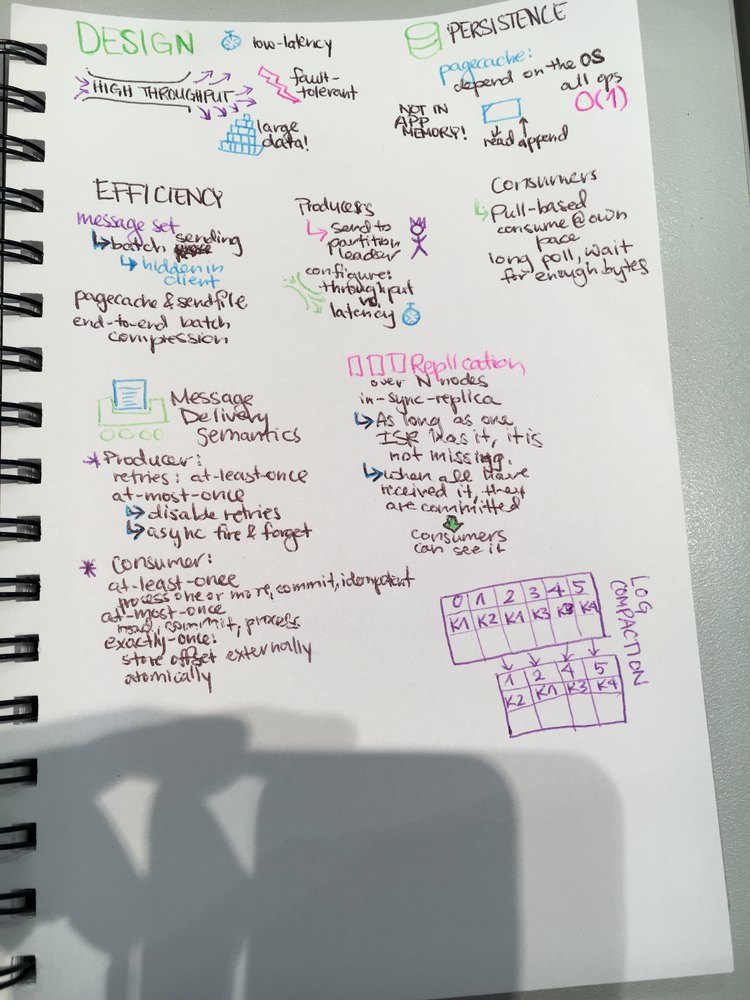 DESIGN
low-latency
HIGH THROUGHPUT
fault-
tolerant
large
data!
PERSISTENCE
pagecache:
depend on the OS
all ops
O(1)
NOT IN
APP
MEMORY!
read append
EFFICIENCY
message set
batch sending
hidden in
client
pagecache & sendfile
end-to-end batch
compression
Producers
send to
partition
leader
configure:
throughput
vs.
latency
Consumers
Pull-based
consume @ own
pace
long poll, wait
for enough bytes
Message
Delivery
Semantics
* Producer:
retries: at-least-once
at-most-once
disable retries
async fire & forget
* Consumer:
at-least-once
process one or more, commit, idempotent
at-most-once
read, commit, process
exactly-once:
store offset externally
atomically
Replication
over N nodes
in-sync-replica
As long as one
ISR has it, it is
not missing.
when all have
received it, they
are committed
Consumers
can see it
LOG
COMPACTION
0 1 2 3 4 5
K1 K2 K1 K3 K3 K4
1 2 4 5
K2 K1 K3 K4